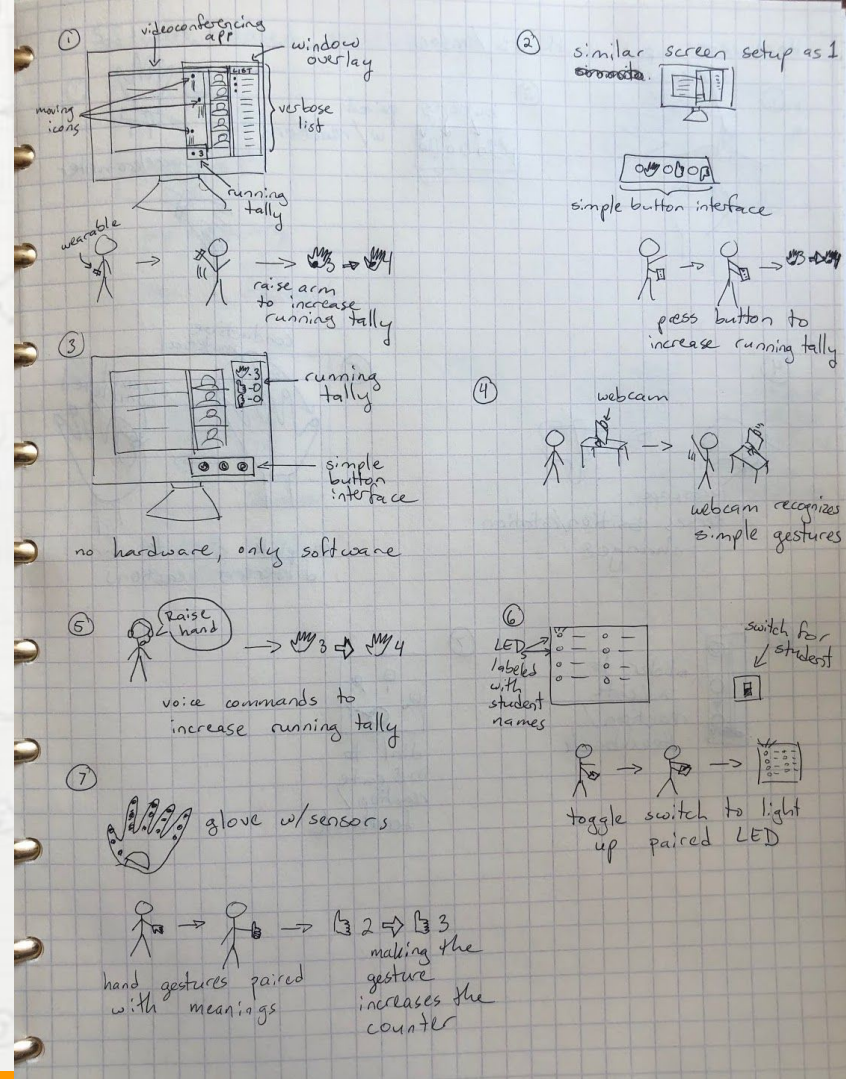 ①
videoconferencing
app
window
overlay
LIST
moving
icons
verbose
list
• 3
running
tally
wearable
3 → 4
raise arm
to increase
running tally
②
similar screen setup as 1
simple button interface
3 → 4
press button to
increase running tally
③
- 3
- 0
- 0
running
tally
simple
button
interface
no hardware, only software
④
webcam
webcam recognizes
simple gestures
⑤
Raise
hand
3 ⇒ 4
voice commands to
increase running tally
⑥
LEDs
labeled
with
student
names
switch for
student
toggle switch to light
up paired LED
⑦
glove w/sensors
2 ⇒ 3
hand gestures paired
with meanings
making the
gesture
increases the
counter